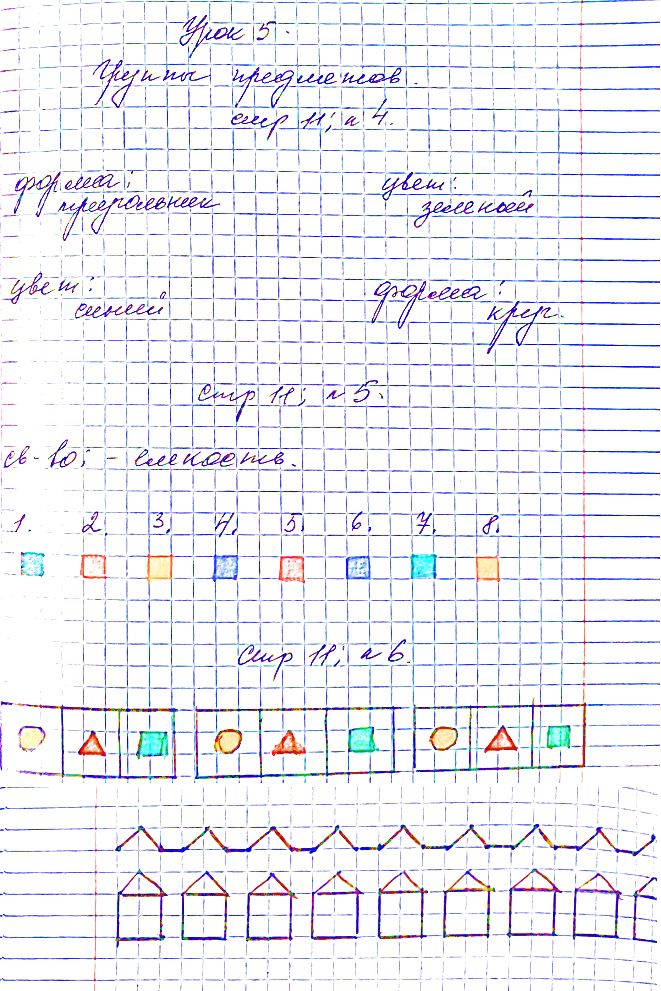 Урок 5.
Группы предметов.
стр 11; n 4.
форма:
треугольник
цвет:
зеленый
цвет:
синий
форма:
круг.
стр 11; n 5.
св-во: - емкость.
1. 2. 3. 4. 5. 6. 7. 8.
стр 11; n 6.